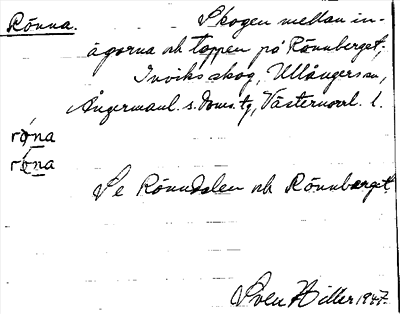 Rönna. Skogen mellan in-
ägorna och toppen på Rönnberget;
Inviks skog, Ullångers sn,
Ångermanl. s. doms. tg, Västernorrl. l.
róna
róna
Se Rönndalen och Rönnberget.
Sven Hiller 1947.